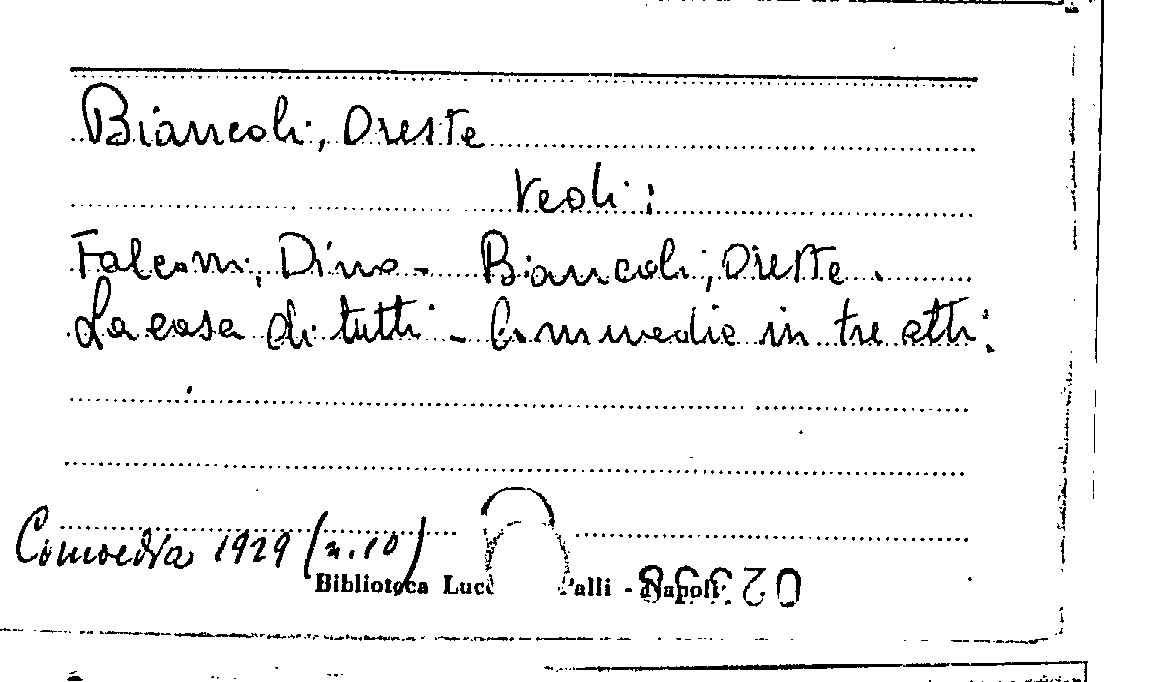 Biancoli, Oreste
Vedi:
Falconi, Dino - Biancoli, Oreste.
La casa di tutti - Commedia in tre atti.
Comoedia 1929 (n.10)
Biblioteca Luc alli - Napoli